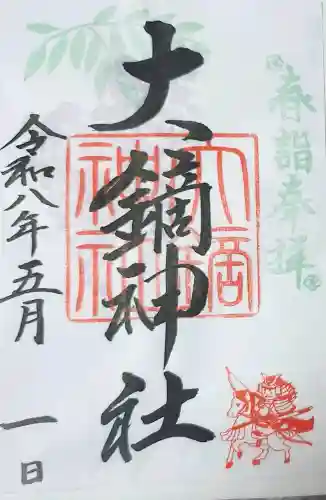 春詣奉拝
大鏑神社
大鏑神社
令和八年五月
一日